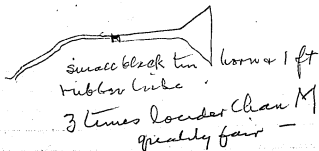 small black tin horn 1 ft
rubber tube.
3 times louder than M
quality fair —